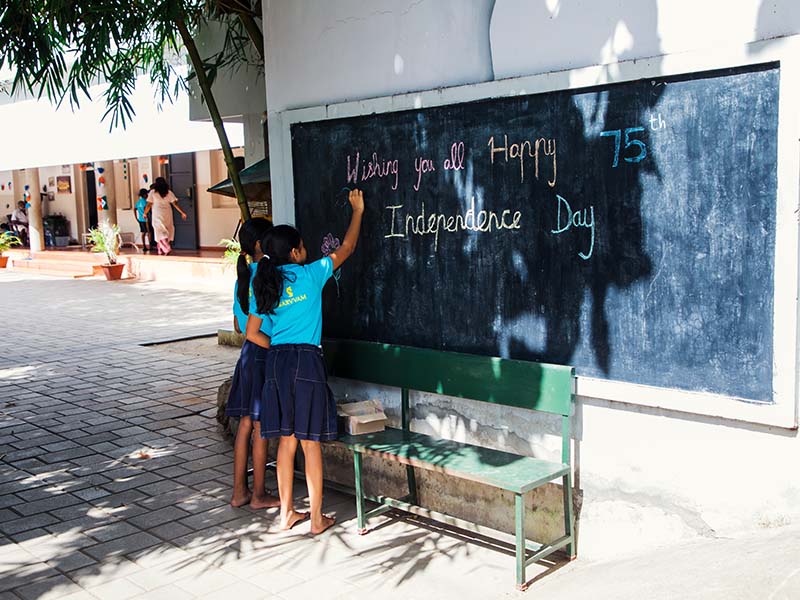 Wishing you all Happy 75th
Independence Day